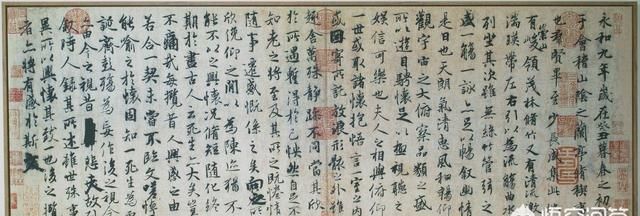 永和九年歲在癸丑暮春之初
于會稽山陰之蘭亭脩禊事
也羣賢畢至少長咸集此
有崇山峻領茂林脩竹又有清流激
湍暎帶左右引以為流觴曲水
列坐其次雖無絲竹管弦之
盛一觴一詠亦足以暢敘幽情
是日也天朗氣清惠風和暢仰
觀宇宙之大俯察品類之盛
所以遊目騁懷足以極視聽之
娛信可樂也夫人之相與俯仰
一世或取諸懷抱悟言一室之內
或因寄所託放浪形骸之外雖
趣舍萬殊靜躁不同當其欣
於所遇蹔得於己怏然自足不
知老之將至及其所之既惓情
隨事遷感慨係之矣向之所
欣俛仰之間以為陳迹猶不
能不以之興懷況脩短隨化終
期於盡古人云死生亦大矣豈
不痛哉每攬昔人興感之由
若合一契未嘗不臨文嗟悼
能喻之於懷固知一死生為虛
誕齊彭殤為妄作後之視今
亦由今之視昔悲夫故列
敘時人錄其所述雖世殊事
異所以興懷其致一也後之攬
者亦將有感於斯文